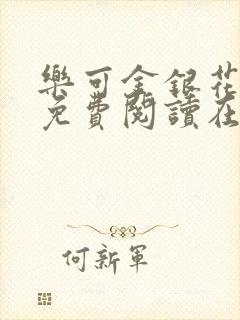 樂可金銀花
免費閱讀在
何新軍